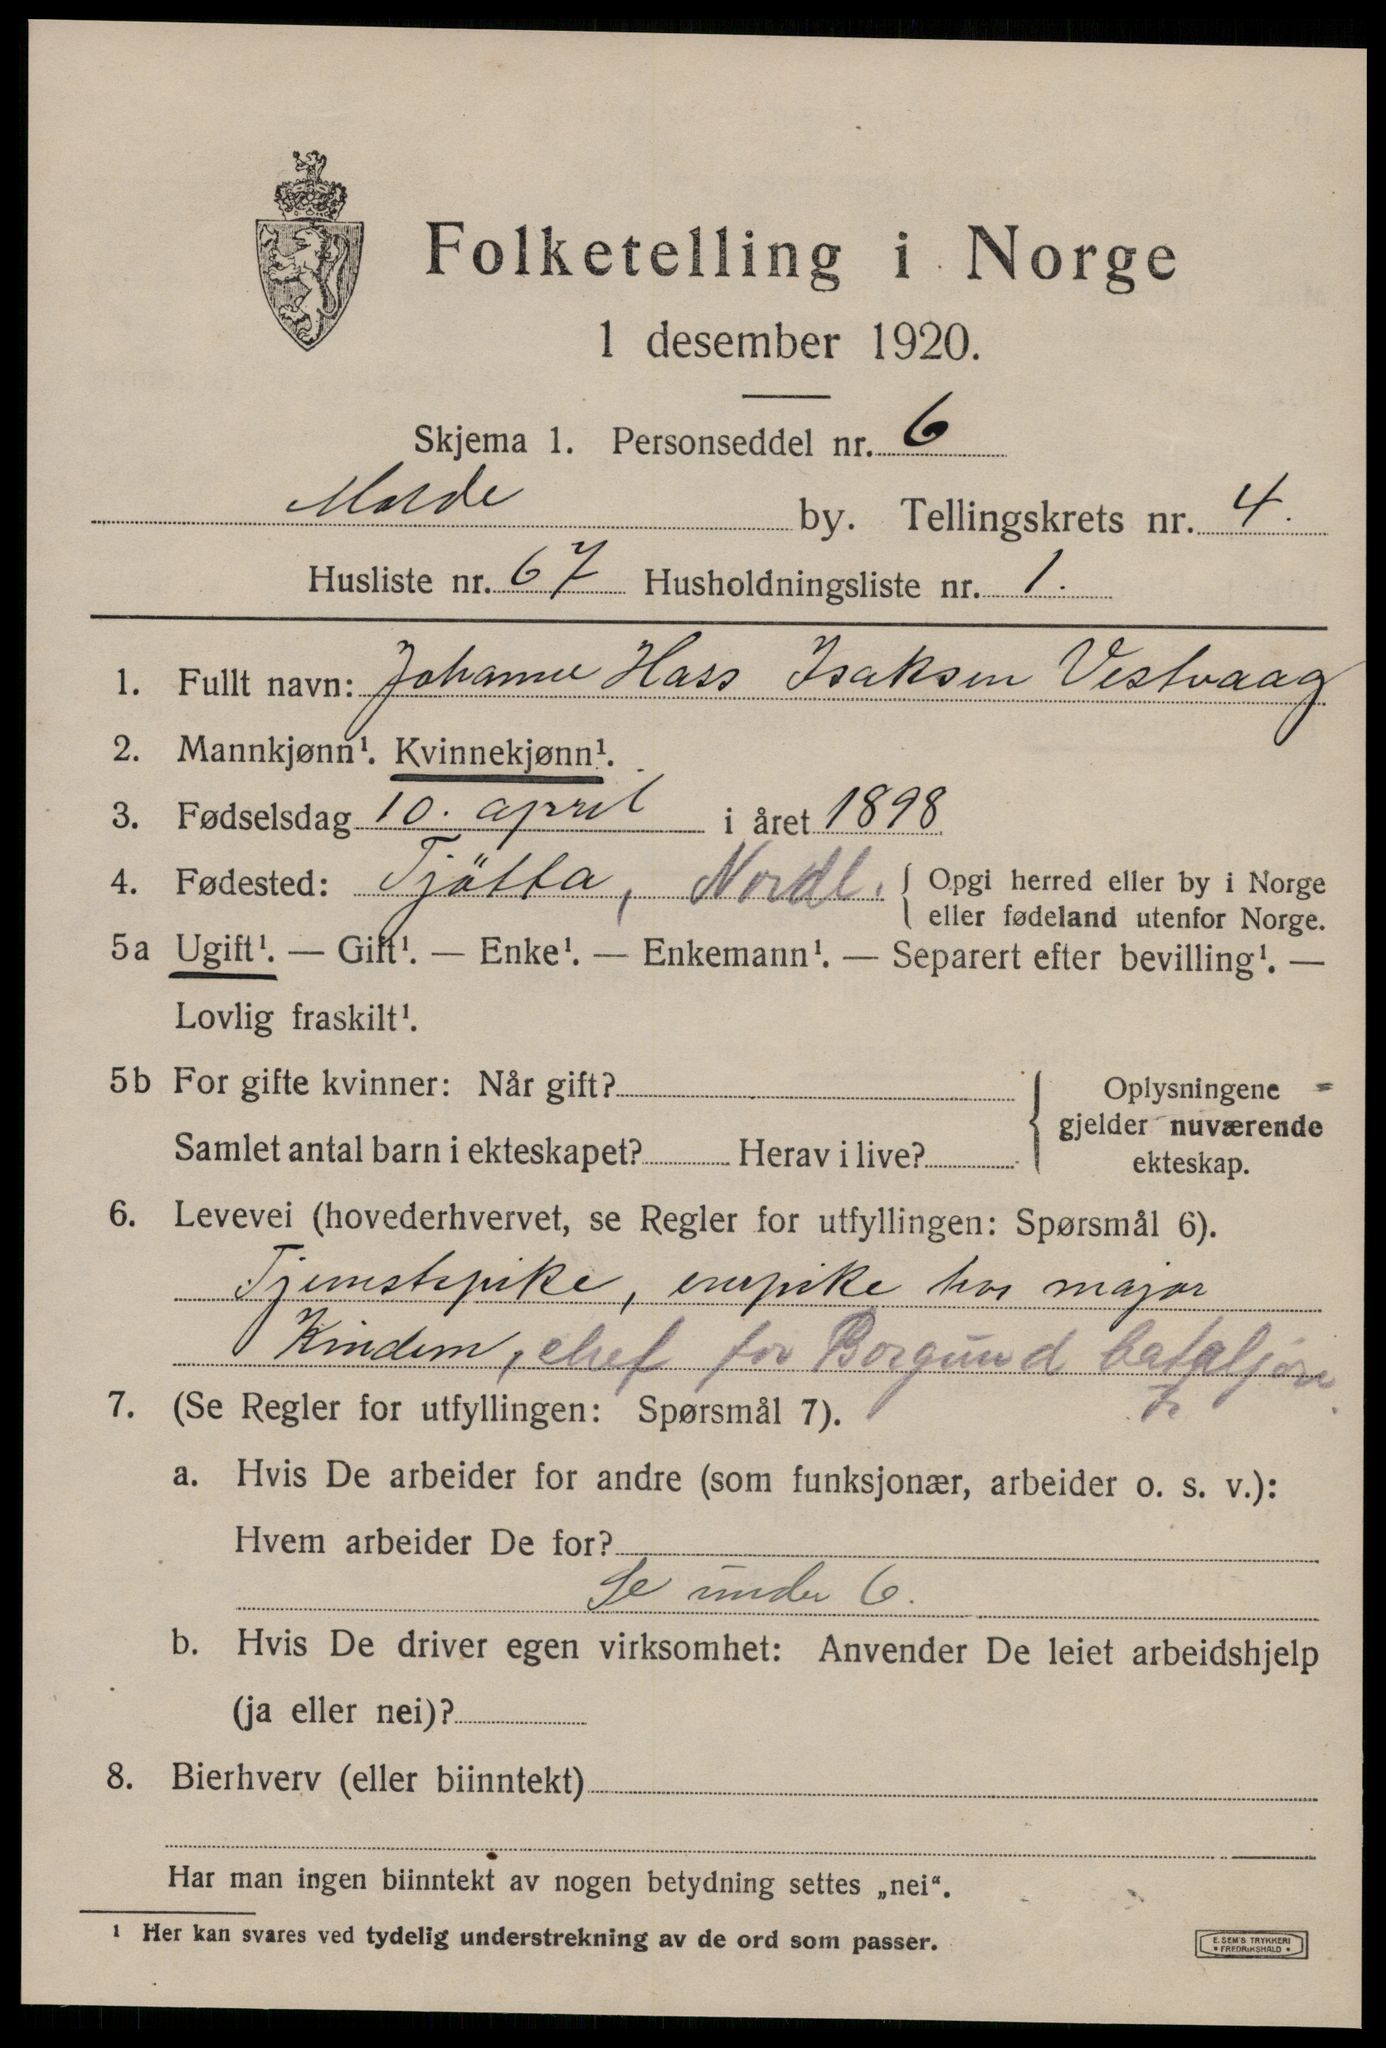 Folketelling i Norge
1 desember 1920.
Skjema 1. Personseddel nr. 6
Molde by. Tellingskrets nr. 4.
Husliste nr. 67 Husholdningsliste nr. 1.
1. Fullt navn: Johanne Hass Isaksen Vestvaag
2. Mannkjønn¹. Kvinnekjønn¹.
3. Fødselsdag 10. april i året 1898
4. Fødested: Tjötta, Nordl. { Opgi herred eller by i Norge
eller fødeland utenfor Norge.
5a Ugift¹. — Gift¹. — Enke¹. — Enkemann¹. — Separert efter bevilling¹. —
Lovlig fraskilt¹.
5b For gifte kvinner: Når gift? { Oplysningene
gjelder nuværende
Samlet antal barn i ekteskapet? Herav i live?
ekteskap.
6. Levevei (hovederhvervet, se Regler for utfyllingen: Spørsmål 6).
Tjenestepike, enepike hos major
Kindem, chef for Borgund bataljon
7. (Se Regler for utfyllingen: Spørsmål 7).
a. Hvis De arbeider for andre (som funksjonær, arbeider o. s. v.):
Hvem arbeider De for?
Se under 6.
b. Hvis De driver egen virksomhet: Anvender De leiet arbeidshjelp
(ja eller nei)?
8. Bierhverv (eller biinntekt)
Har man ingen biinntekt av nogen betydning settes „nei“.
¹ Her kan svares ved tydelig understrekning av de ord som passer.
E. SEM'S TRYKKERI
• FREDRIKSHALD •